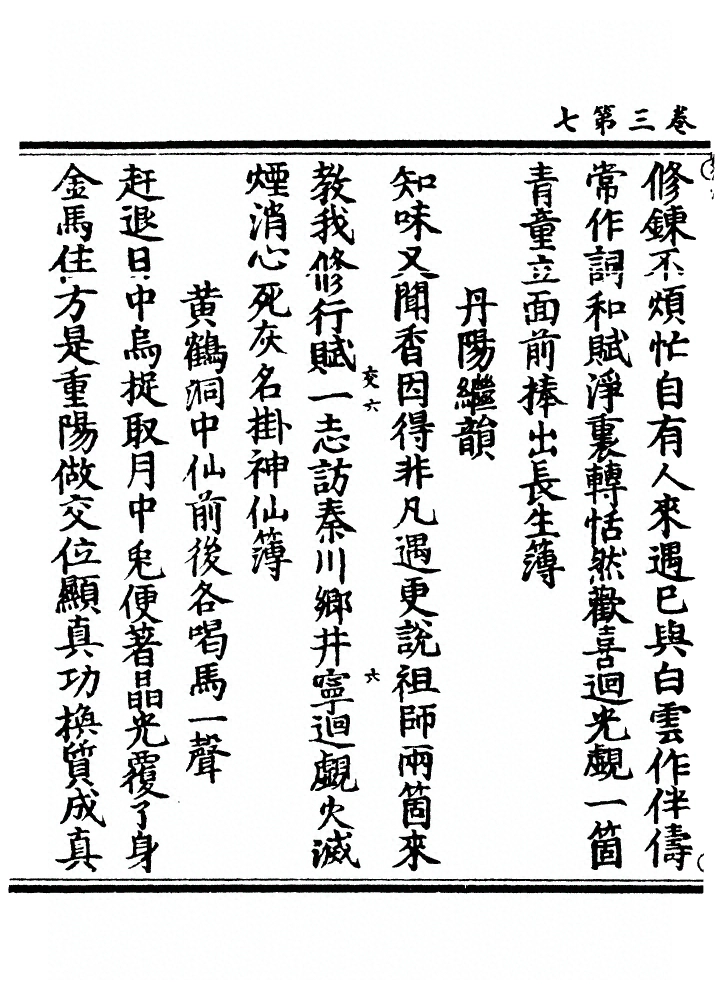 卷三第七
修鍊不煩忙自有人來遇已與白雲作伴儔
常作詞和賦淨裏轉恬然歡喜迴光覷一箇
青童立面前捧出長生簿
丹陽繼韻
知味又聞香因得非凡遇更說祖師兩箇來
教我修行賦一志訪秦川鄉井寧迴覷火滅
煙消心死灰名掛神仙簿
交六
六
黄鶴洞中仙前後各喝馬一聲
赶退日中烏捉取月中兎便著晶光覆了身
金馬住方是重陽做交位顯真功換質成真